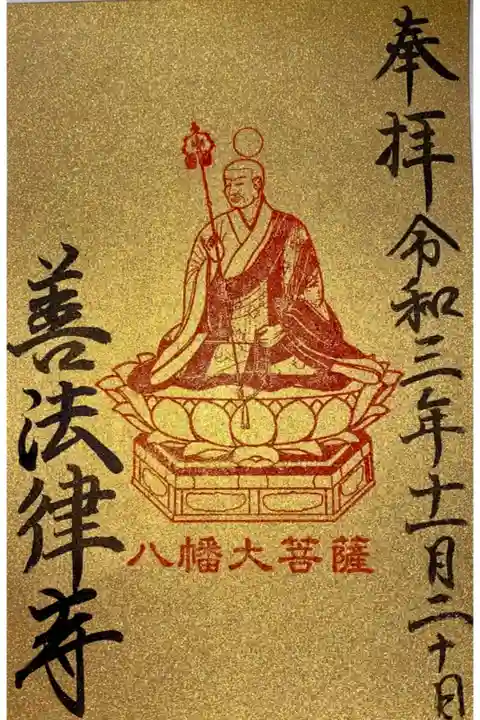 奉拝 令和三年十一月二十日
八幡大菩薩
善法律寺